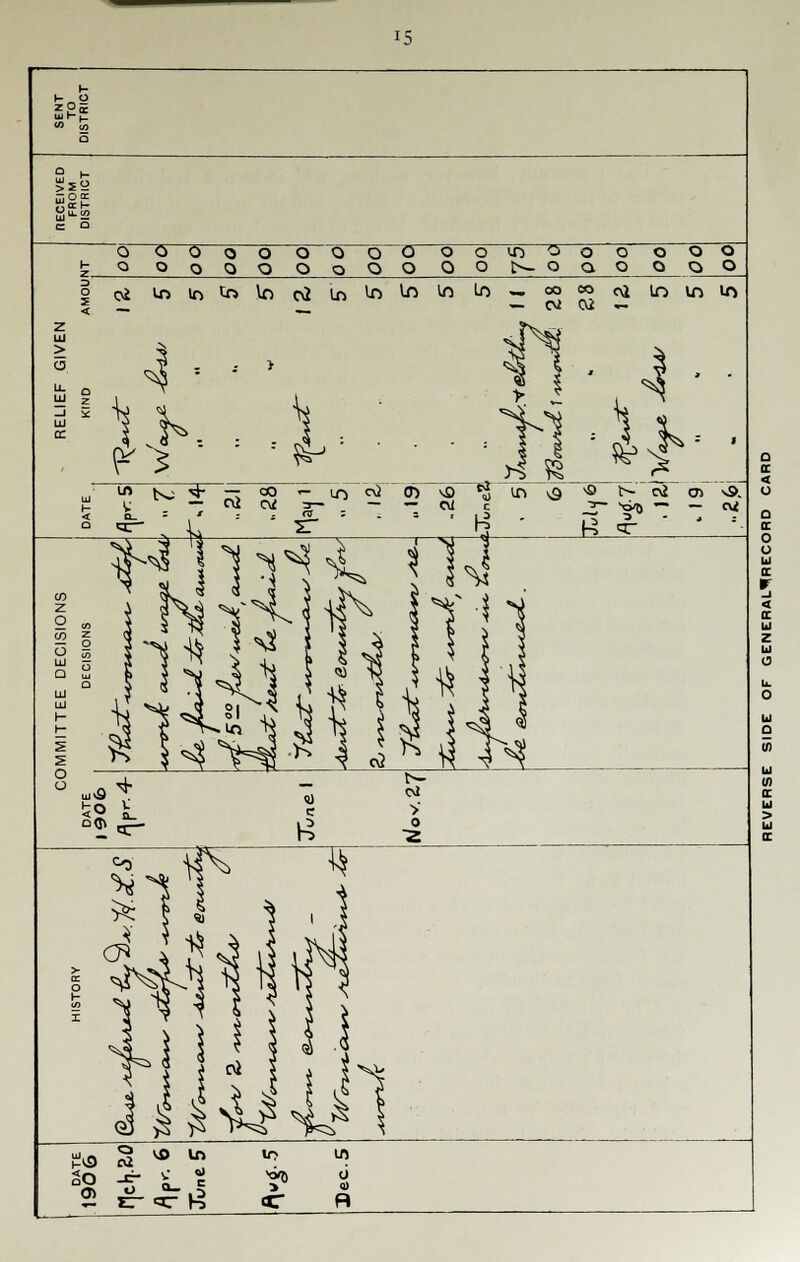 15
HISTORY
DATE
1906
Mch. 20 Case referred by Dr. H. L. S
Apr. 6 Woman stops work
June 5 Woman sent to country
for 2 months
Aug. 5 Woman returns
from country -
Dec. 5 Woman returns to
work
COMMITTEE DECISIONS
DATE
1906 DECISIONS
Apr. 4 That woman stop
work and wage loss
be paid to the amount
of 5 00 per week, and
that rent be paid
June 1 That woman be
sent to country for
2 months.
Nov. 27 That woman re-
turn to work, and
supervision in home
be continued.
RELIEF GIVEN
DATE KIND AMOUNT
Apr. 5 Rent 12 00
" 7. Wage loss 5 00
" 14 " " 5 00
" 21 " " 5 00
" 28 " " 5 00
May 1 Rent 12 00
" 5 " 5 00
" 12 " 5 00
" 19 " 5 00
" 26 " 5 00
June 2 " 5 00
" 5 Transp. + clothing 11 75
6 Board 1 month 28 00
July 6 " " 28 00
Aug. 7 Rent 12 00
" 12 Wage loss 5 00
" 19 " " 5 00
" 26 " " 5 00
RECEIVED
FROM
DISTRICT
SENT
TO
DISTRICT
REVERSE SIDE OF GENERAL RECORD CARD